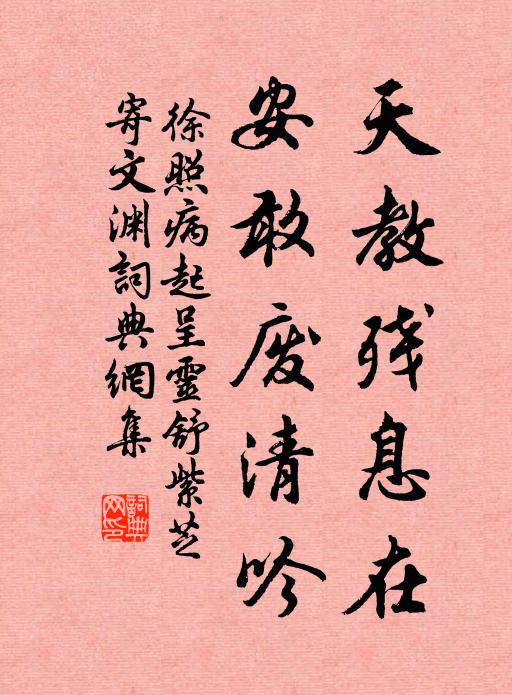 天教残息在
安敢废清吟
徐照病起呈靈舒紫芝
寄文渊詞典網集
詞典网印